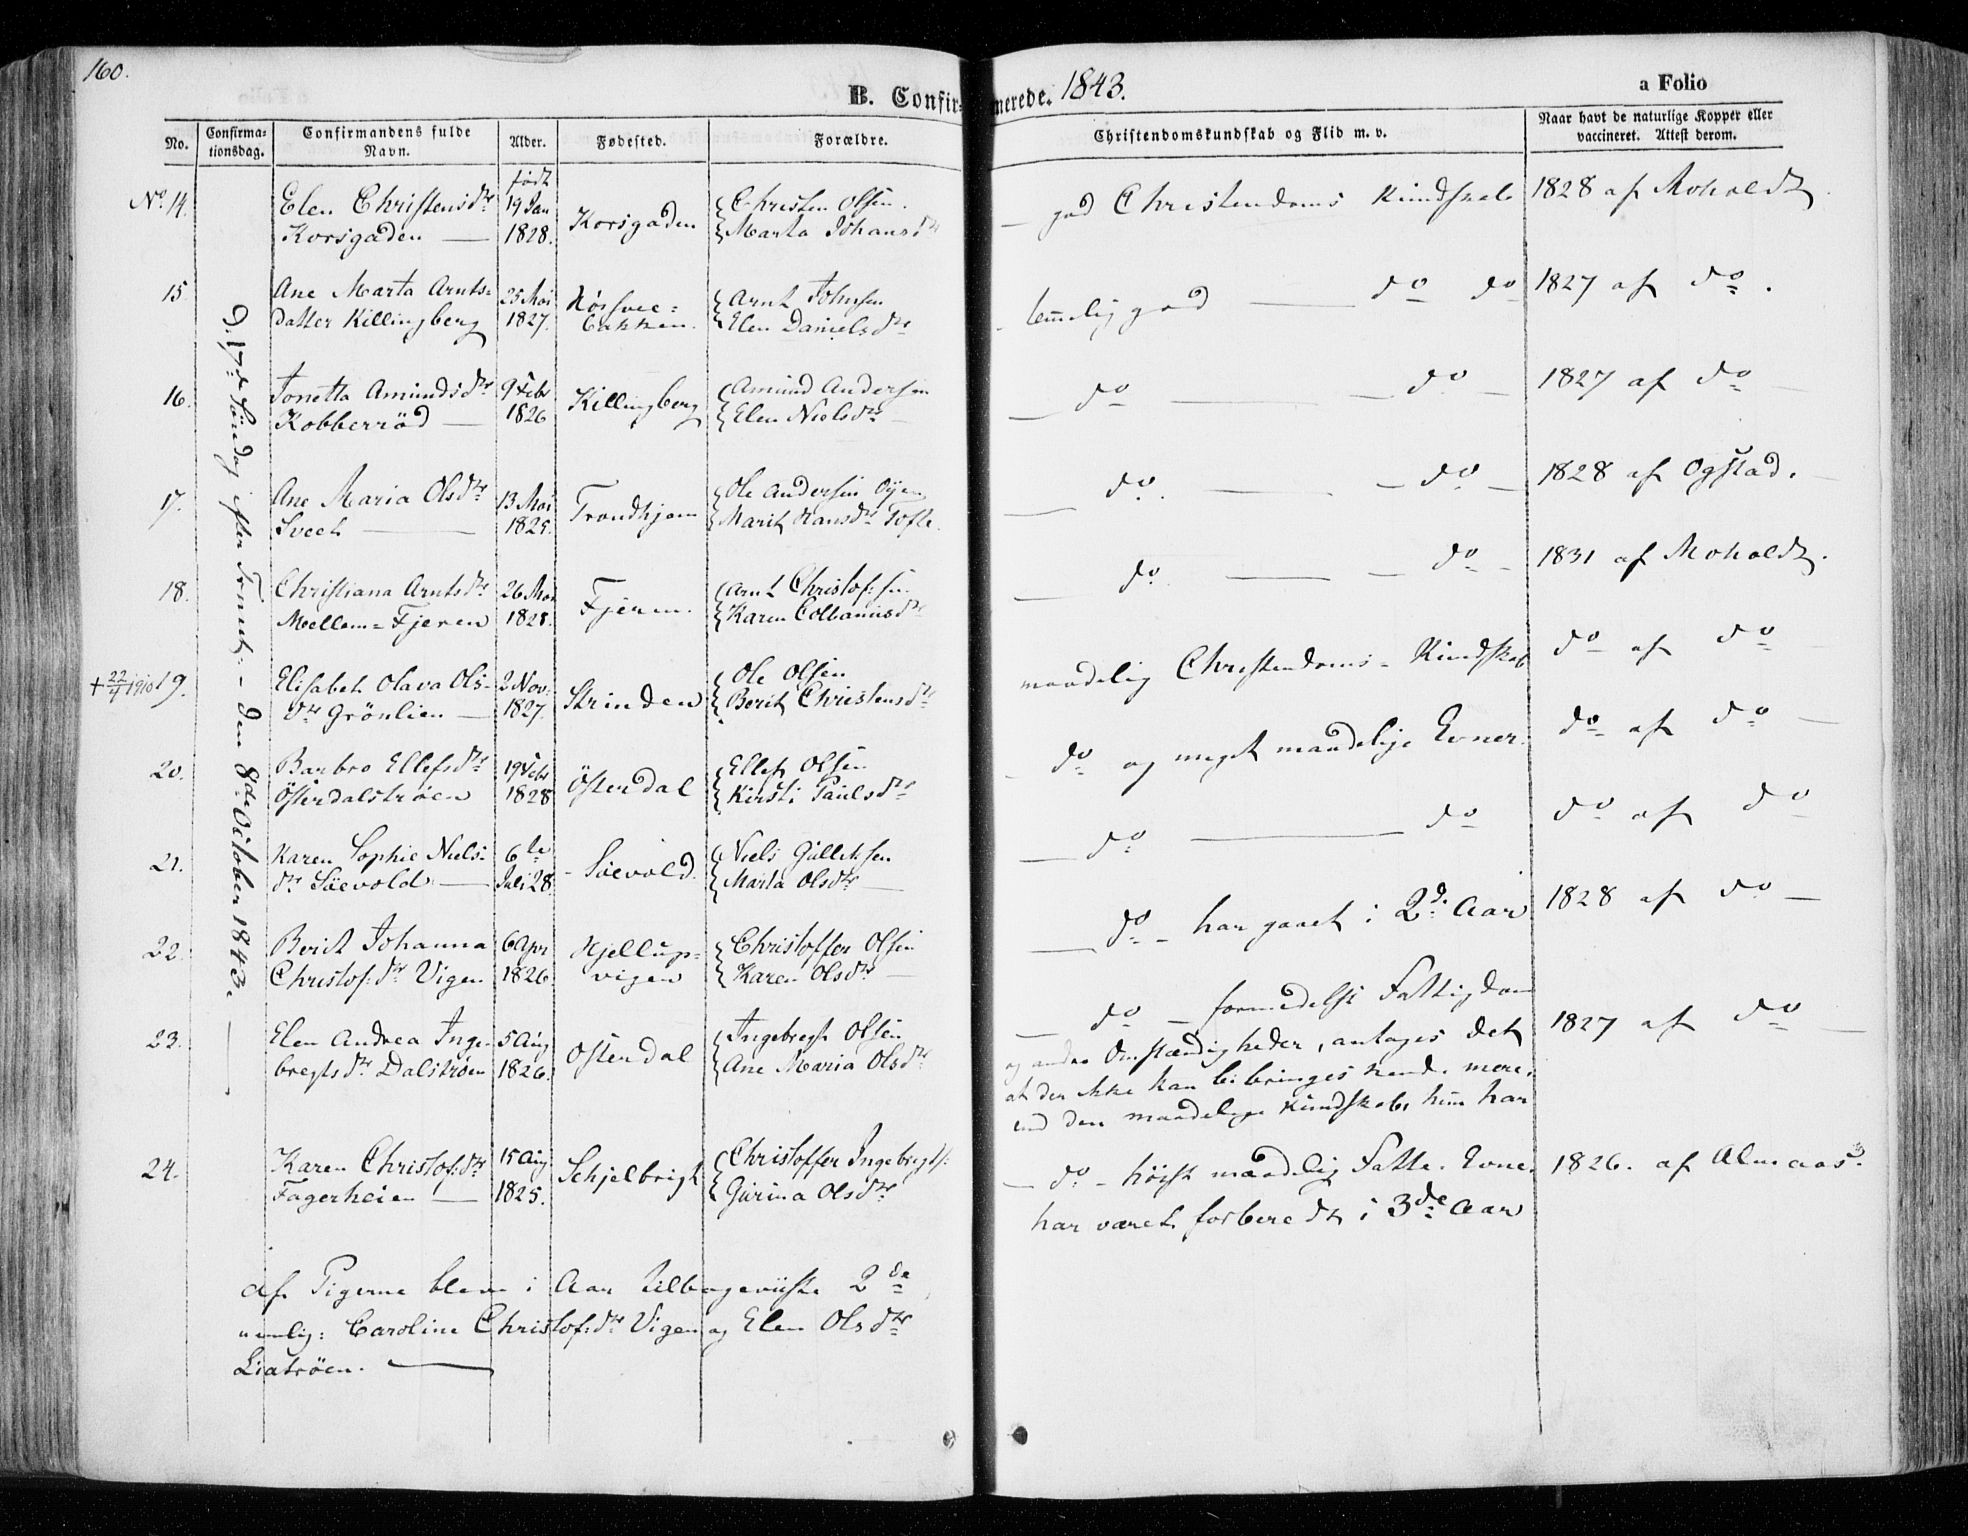 160.
B. Confirmerede. 1843.
a Folio
No.
Confirmationsdag.
Confirmandens fulde Navn.
Alder.
Fødested.
Forældre.
Christendomskundskab og Flid m. v.
Naar havt de naturlige Kopper eller vaccineret. Attest derom.
D. 17de Søndag efter Trinit: – den 8de October 1843.
No. 14. Elen Christensdtr født 19 Jan Korsgaden Christen Olsen. – god Christendoms Kundskab 1828 af Moholdt
Korsgaden — 1828. Marta Johansdtr
15 Ane Marta Arnts= 25 Mai Arnt Johnsen temmelig god — do do 1827 af do.
datter Killingberg 1827. bakken. Elen Danielsdtr
16. Jonetta Amundsdtr 9 Febr Killingberg Amund Andersen do — do 1827 af do
Kobberröd — 1826 Elen Nielsdtr
17. Ane Maria Olsdtr 13 Mai Trondhjem Ole Andersen Öyen do. — do 1828 af Ogstad.
Sveet — 1825. Marit Hansdtr Tofte.
18. Christiana Arntsdtr 26 Mai Fjeren. Arnt Christof:sen do — do 1831 af Moholdt.
Mellem=Fjeren 1828. Karen Colbansdtr
+ 22/4 1910 19. Elisabet Olava Ols- 2 Nov: Strinden Ole Olsen maadelig Christendoms-Kundskab do af do
dtr Grönlien — 1827. Berit Christensdtr
20. Barbro Ellefsdtr 19 Febr Österdal Ellef Olsen do og meget maadelige Evner. do af do —
Österdalströen 1828 Kirsti Paulsdtr
21. Karen Sophie Niels- 6te Söevold Niels Gulleksen do — do do af do
dtr Söevold — Juli 28. Marta Olsdtr —
22. Berit Johanna 6 Apr Hjellup= Christoffer Olsen do – har gaaet i 2d. Aar 1828 af do —
Christof:dtr Vigen 1826 vigen Karen Olsdtr —
23. Elen Andrea Inge- 5 Aug Österdal Ingebregt Olsen do – formedelst Fattigdom 1827 af do
bregtsdtr Dalströen 1826. Ane Maria Olsdtr og andre Omstændigheder, antages det
at der ikke kan bibringes hende mere,
end den maadelige Kundskab, hun har
24. Karen Christof:dtr 15 Aug Schjelbrigt Christoffer Ingebrigts: do – höist maadelig Fatte-Evne. 1826. af Almaas.
Fagerheien — 1825. Gurina Olsdtr har været forberedt i 3de Aar
Af Pigerne bleve i Aar tilbageviiste 2de
nemlig: Caroline Christof:dtr Vigen og Elen Olsdtr
Liatröen. —